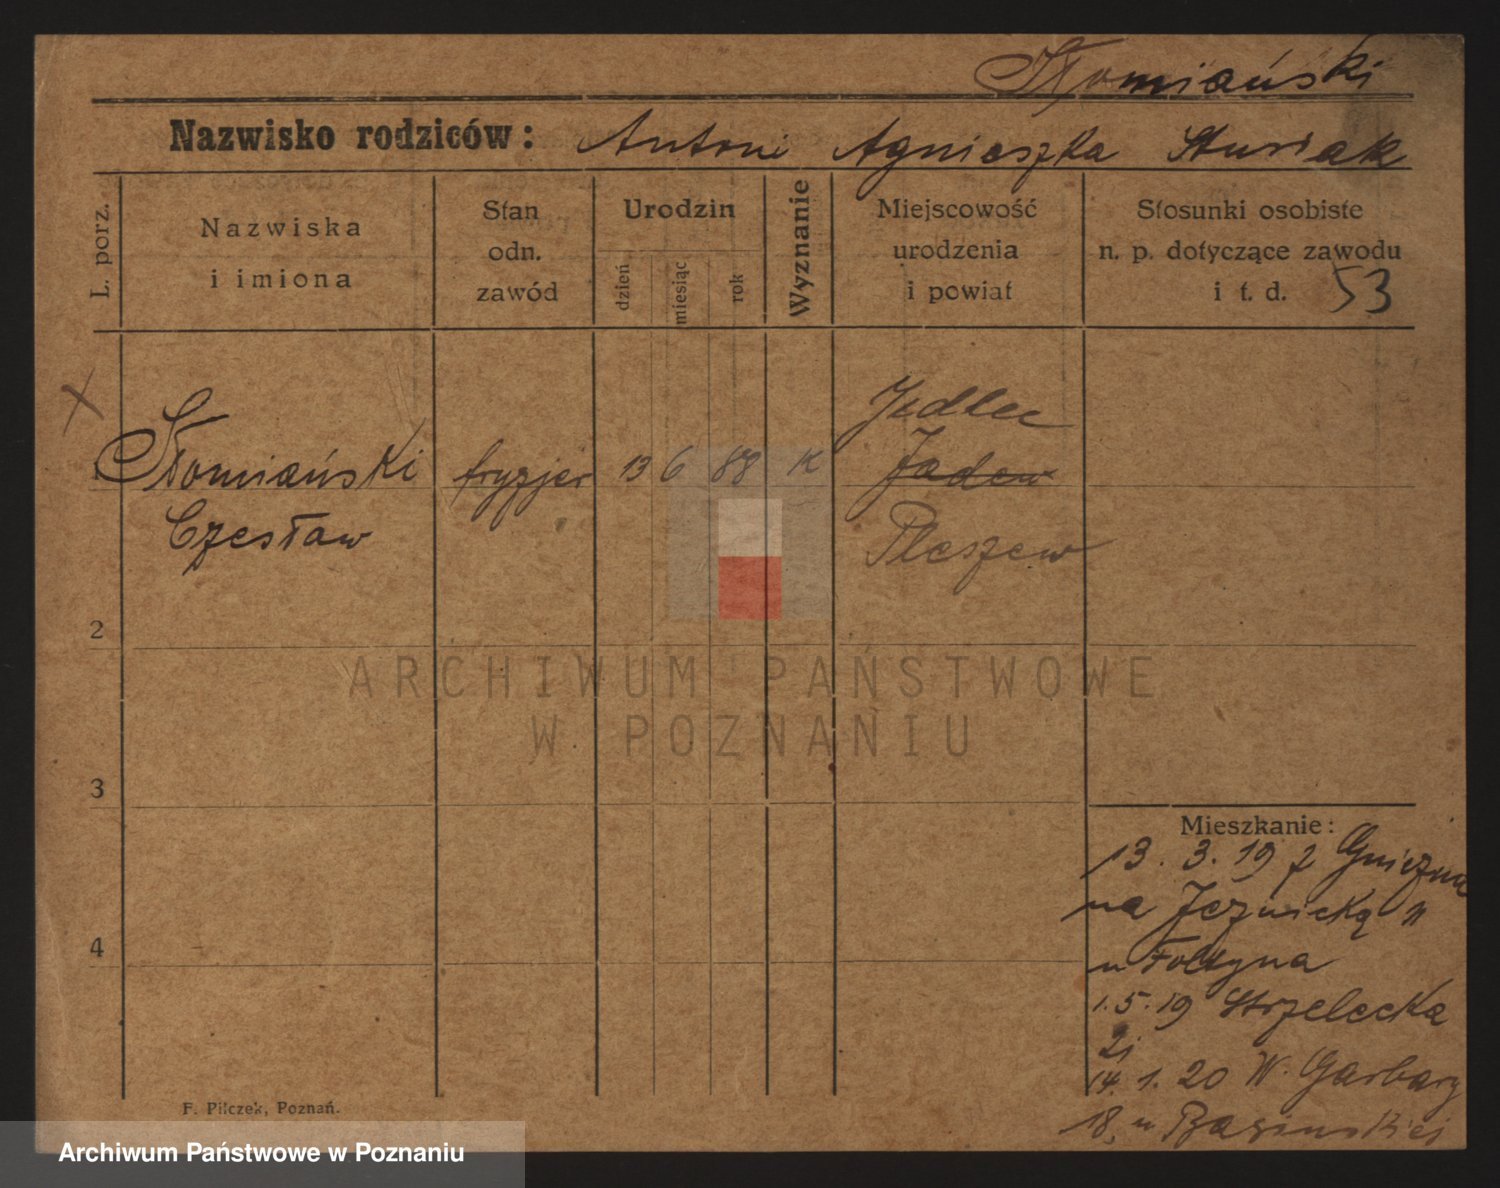 Słomiański
Nazwisko rodziców: Antoni Agnieszka Stusiak
L. porz.
Nazwiska
i imiona
Stan
odn.
zawód
Urodzin
dzień
miesiąc
rok
Wyznanie
Miejscowość
urodzenia
i powiat
Stosunki osobiste
n. p. dotyczące zawodu
i t. d. 53
Jedlec
Słomiański fryzjer 13 6 88 K Jadew
Czesław Pleszew
2
3
4
Mieszkanie:
13. 3. 19 z Gniezna
na Jezuicką 11
u Foltyna
1. 5. 19 Strzelecka
21
14. 1. 20 W. Garbary
18, u
F. Pilczek, Poznań.
ARCHIWUM PAŃSTWOWE
W POZNANIU
Archiwum Państwowe w Poznaniu